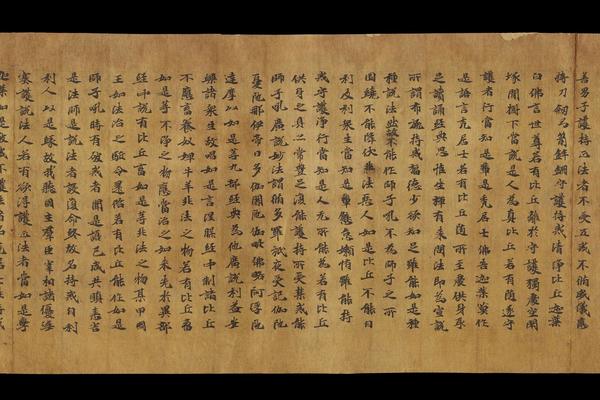 善男子護持正法者不受五戒不修威儀應
持刀劍弓箭鉾槊守護持戒清淨比丘迦葉
白佛言世尊若有比丘離於守護獨處空閑
塚間樹下當說是人為真比丘若有隨逐守
護者行當知是輩是禿居士佛告迦葉莫作
是語言禿居士若有比丘隨所至處供身取
足讀誦經典思惟坐禪有來問法即為宣說
所謂布施持戒福德少欲知足雖能如是種
種說法然故不能作師子吼不為師子之所
圍繞不能降伏非法惡人如是比丘不能自
利及利眾生當知是輩懈怠懶惰雖能持
戒守護淨行當知是人无所能為若有比丘
供身之具亦常豐足復能護持所受禁戒能
師子吼廣說妙法謂脩多羅祇夜受記伽陀
憂陀那伊帝曰多伽闍陀伽毗佛略阿浮陀
達摩以如是等九部經典為他廣說利益安
樂諸眾生故唱如是言涅槃經中制諸比丘
不應畜養奴婢牛羊非法之物若有比丘畜
如是等不淨之物應當治之如來先於異部
經中說有比丘畜如是等非法之物某甲國
王如法治之驅令還俗若有比丘能作如是
師子吼時有破戒者聞是語已咸共瞋恚害
是法師是說法者設復命終故名持戒自利
利人以是緣故我聽國主群臣宰相諸優婆
塞護說法人若有欲得護正法者當如是學
迦葉如是破戒不護法者名禿居士非持戒